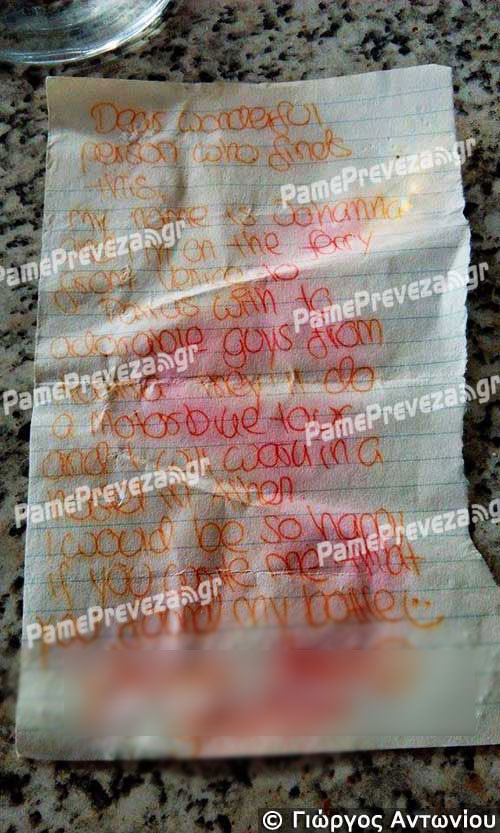 Dear wonderful
person who finds
this
my name is Johanna
and I'm on the ferry
to
Patras with to
adorable guys from
They'll do
a motorbike tour
and I will work in a
hotel in
I would be so happy
if you me that
you found my bottle :)
PamePreveza.gr
PamePreveza.gr
PamePreveza.gr
PamePreveza.gr
PamePreveza.gr
PamePreveza.gr
PamePreveza.gr
PamePreveza.gr
PamePreveza.gr
© Γιώργος Αντωνίου